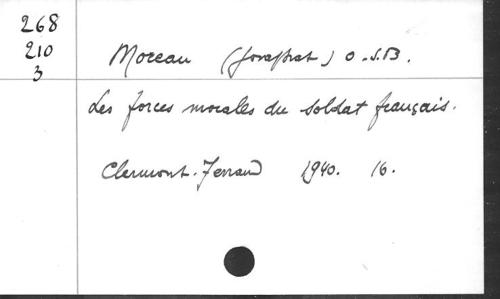 268
210
3
Moreau (Josaphat) O.S.B.
Les forces morales du soldat français.
Clermont-Ferrand 1940. 16.